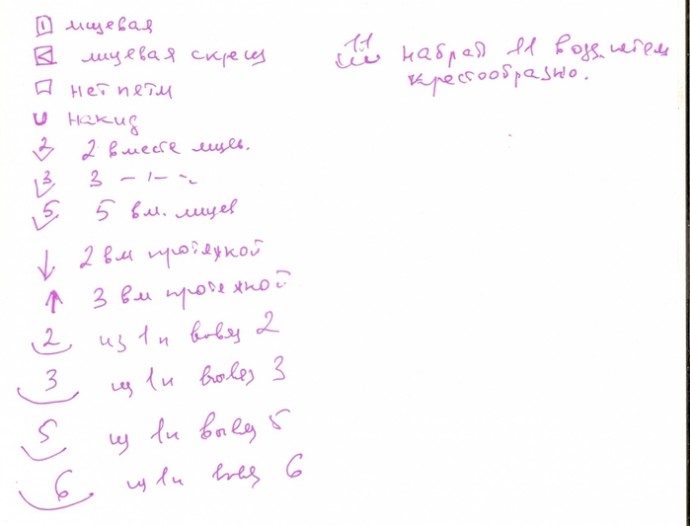 лицевая
лицевая скрещ
нет петли
накид
2 2 вместе лицев.
3 3 — ı — ~
5 5 вм. лицев
2 вм протяжкой
3 вм протяжкой
2 из 1 п вывяз 2
3 из 1 п вывяз 3
5 из 1 п вывяз 5
6 из 1 п вывяз 6
11 набрать 11 возд петель
крестообразно.